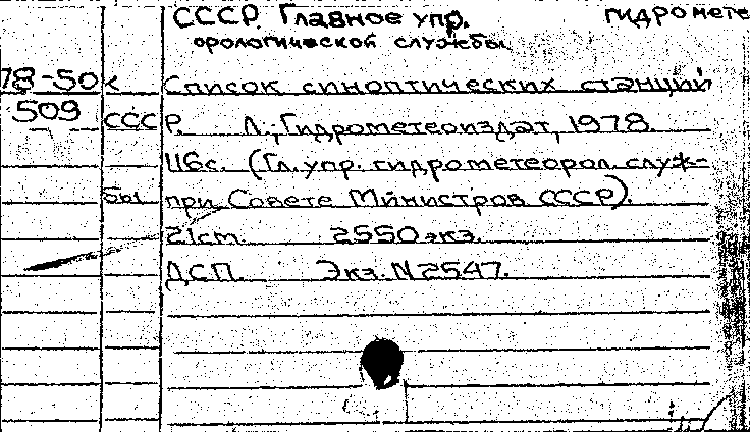 СССР. Главное упр. гидромете
орологической службы.
78-50 к Список синоптических станций
509 СССР. Л.; Гидрометеоиздат, 1978.
116с. (Гл. упр. гидрометеорол. служ-
бы при Совете Министров СССР).
21см. 2550 экз.
ДСП. Экз. N2547.